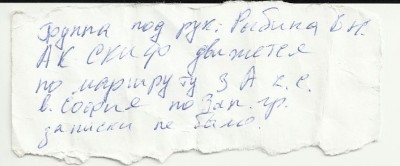 Группа под рук. Рыбина В.Н.
АК СКИФ движется
по маршруту 3 А к.с.
в. София по Зап. гр.
записки не было.